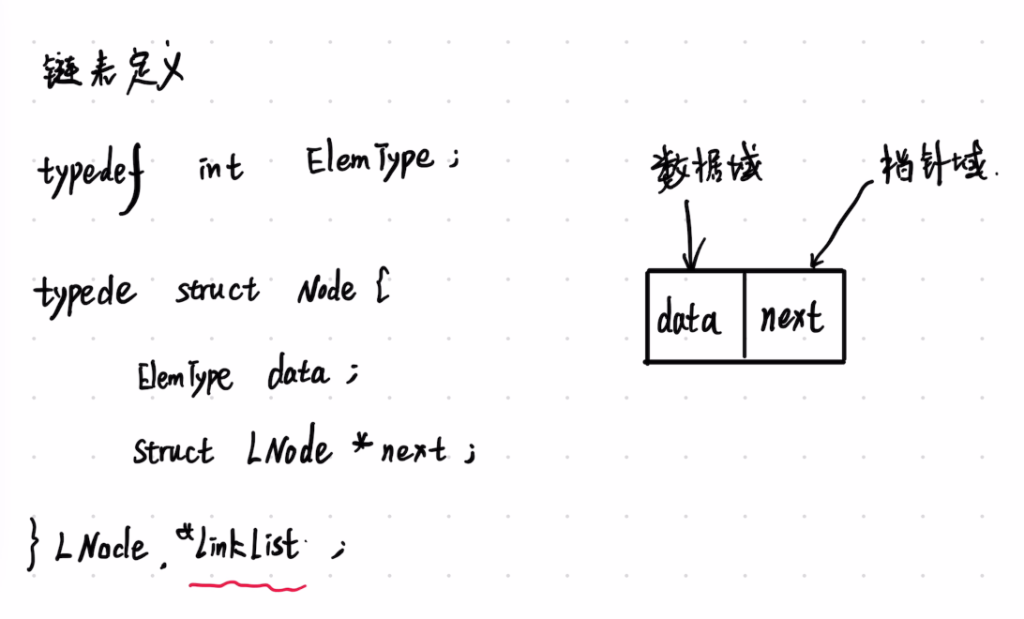 链表定义
typedef int ElemType;
数据域 指针域.
typede struct Node {
data next
ElemType data;
struct LNode *next;
} LNode, *LinkList;